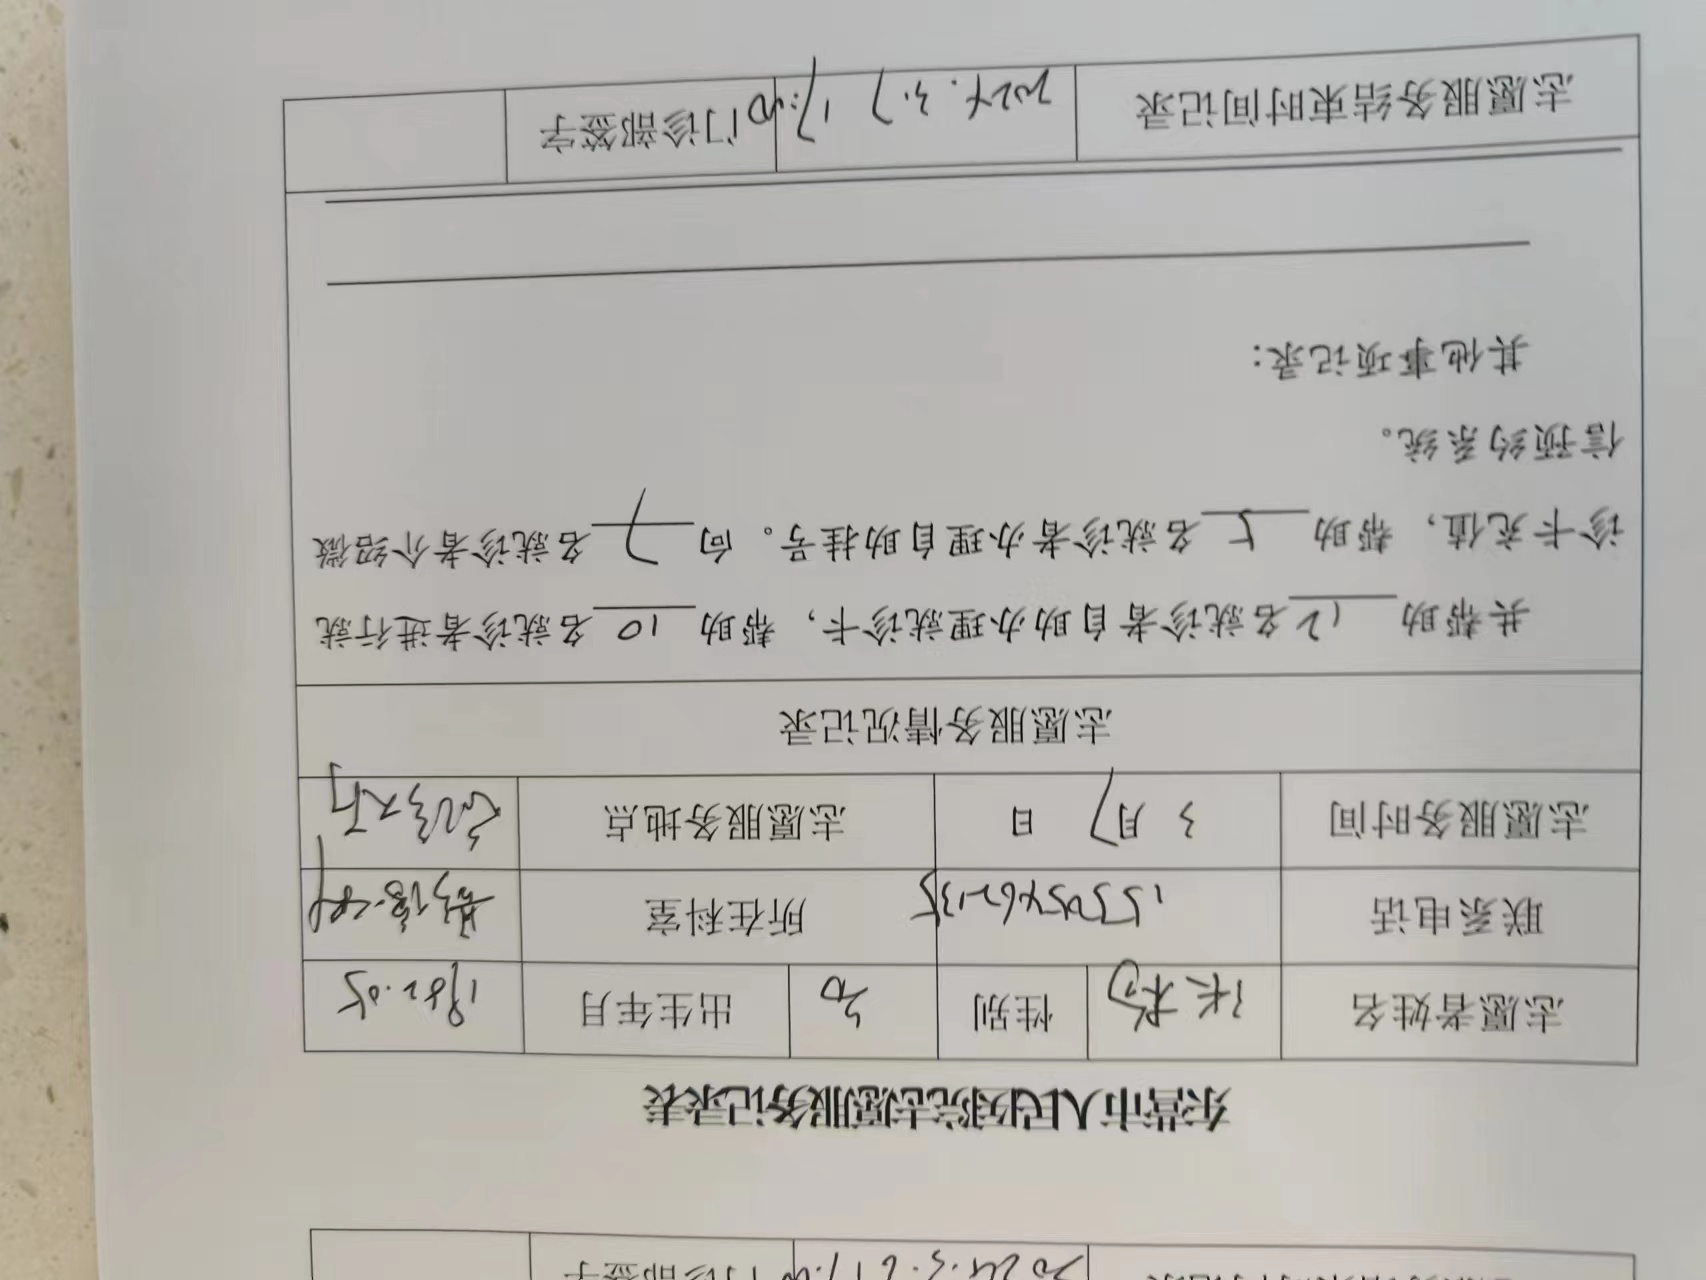 东营市人民医院志愿服务记录表
志愿者姓名 张 性别 女 出生年月 1982.05
联系电话 15305462135 所在科室
志愿服务时间 3月7日 志愿服务地点 门诊大厅
志愿服务情况记录
共帮助12名就诊者自助办理就诊卡，帮助10名就诊者进行就
诊卡充值，帮助5名就诊者办理自助挂号。向7名就诊者介绍微
信预约系统。
其他事项记录：
志愿服务结束时间记录 2024.3.7 17:40 门诊部签字